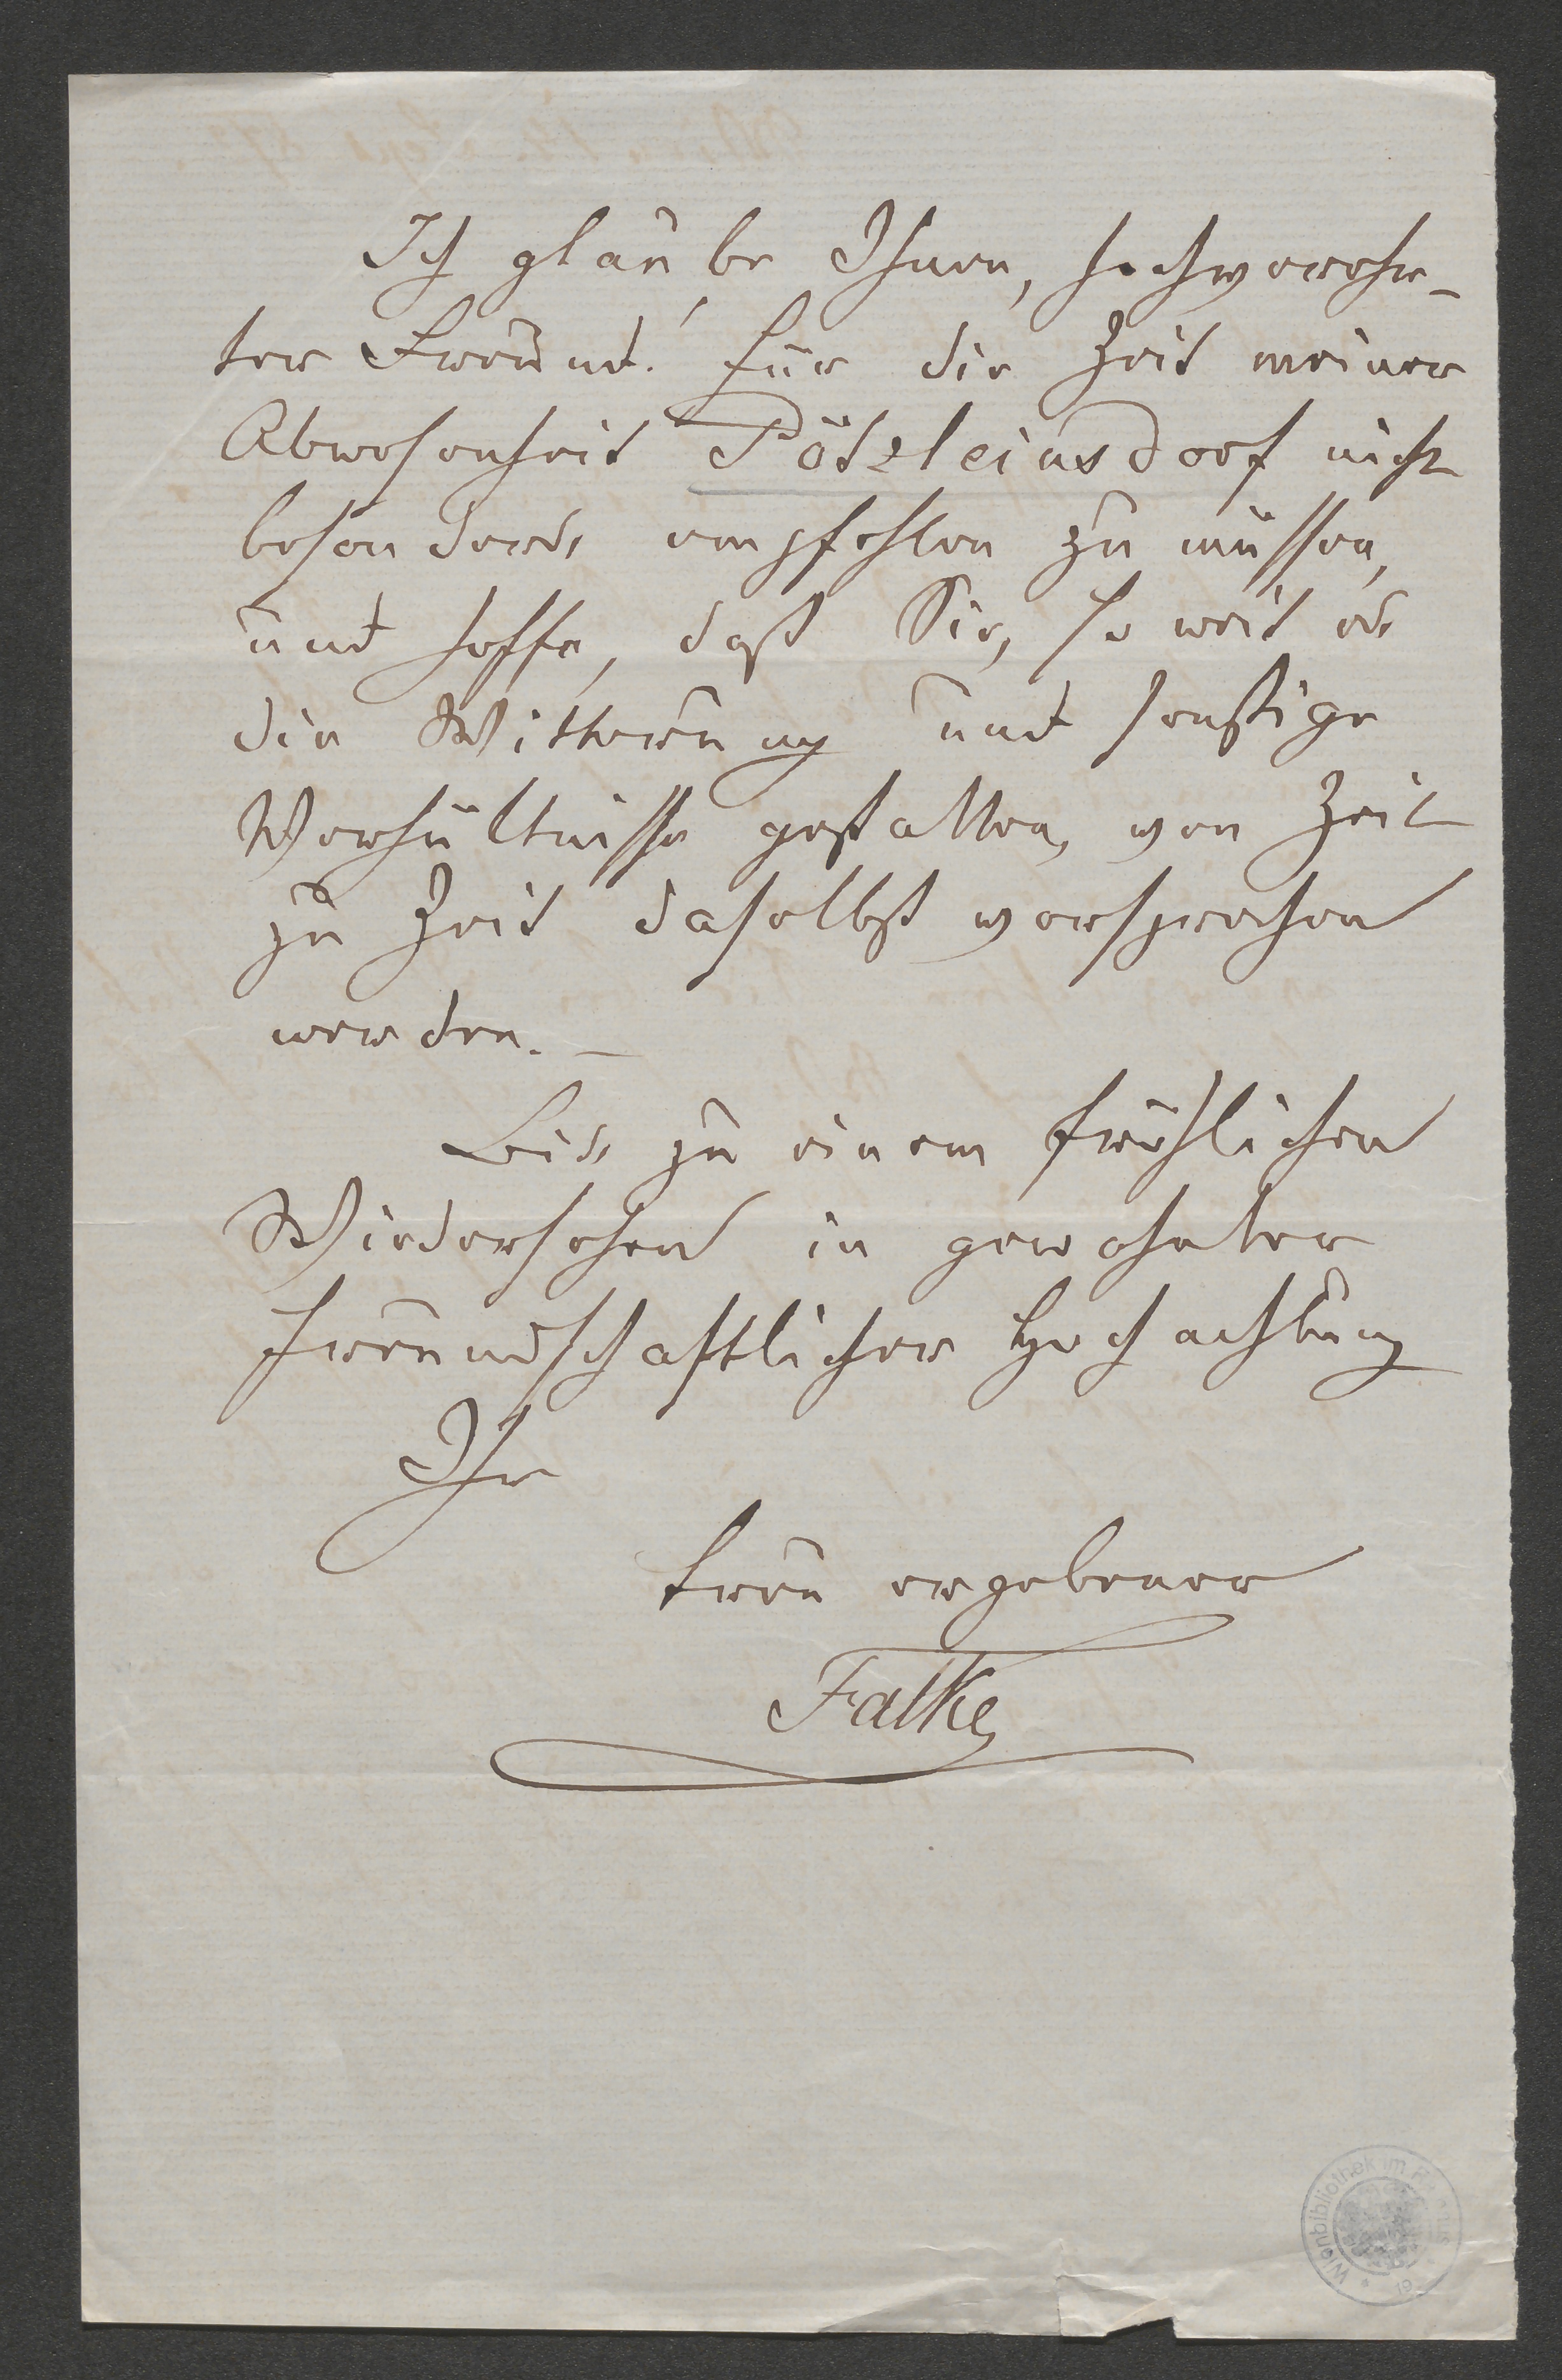 Ich glaube Ihnen, hochverehr-
ter Freund! für die Zeit meiner
Abwesenheit Pötzleinsdorf nicht
besonders empfehlen zu müssen,
und hoffe, daß Sie, so weit es
die Witterung und sonstige
Verhältnisse gestatten, von Zeit
zu Zeit daselbst vorsprechen
werden. –
Bis zu einem fröhlichen
Wiedersehen in gewohnter
freundschaftlicher Hochachtung
Ihr
treu ergebener
Falke
Wienbibliothek im